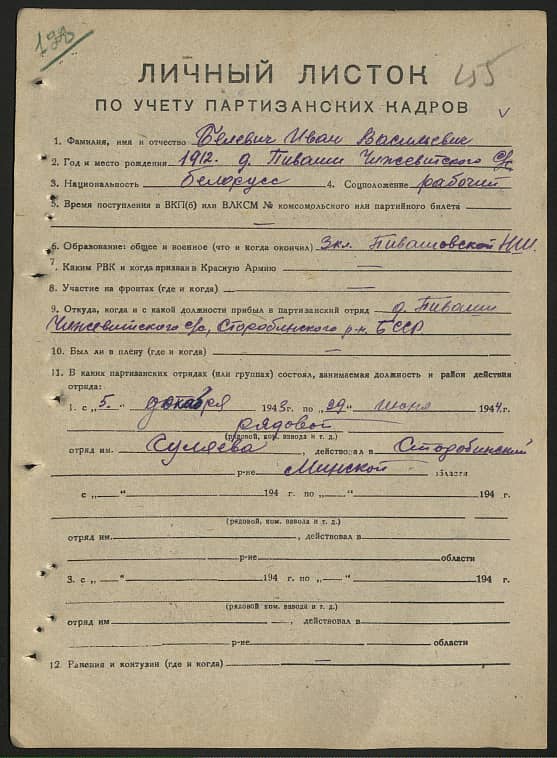 123
ЛИЧНЫЙ ЛИСТОК 455
ПО УЧЕТУ ПАРТИЗАНСКИХ КАДРОВ
1. Фамилия, имя и отчество Белевич Иван Васильевич
2. Год и место рождения 1912. д. Пиваши Чижевитского с/с
3. Национальность белорусс 4. Соцположение рабочий
5. Время поступления в ВКП(б) или ВЛКСМ № комсомольского или партийного билета
—
6. Образование: общее и военное (что и когда окончил) 3кл. Пивашовской НШ.
7. Каким РВК и когда призван в Красную Армию —
8. Участие на фронтах (где и когда) —
9. Откуда, когда и с какой должности прибыл в партизанский отряд д. Пиваши
Чижевитского с/с, Старобинского р-н. БССР
10. Был ли в плену (где и когда) —
11. В каких партизанских отрядах (или группах) состоял, занимаемая должность и район действия
отряда:
1. с „5." декабря 1943 г. по „29" июня 1944 г.
рядовой
(рядовой, ком. взвода и т. д.)
отряд им. Суляева, действовал в Старобинский
р-не Минской области
с „—" 194 г. по „—" 194 г.
(рядовой, ком. взвода и т. д.)
отряд им. , действовал в
р-не области
3. с „—" 194 г. по „—" 194 г.
(рядовой, ком. взвода и т. д.)
отряд им , действовал в
р-не области
12. Ранения и контузии (где и когда) —